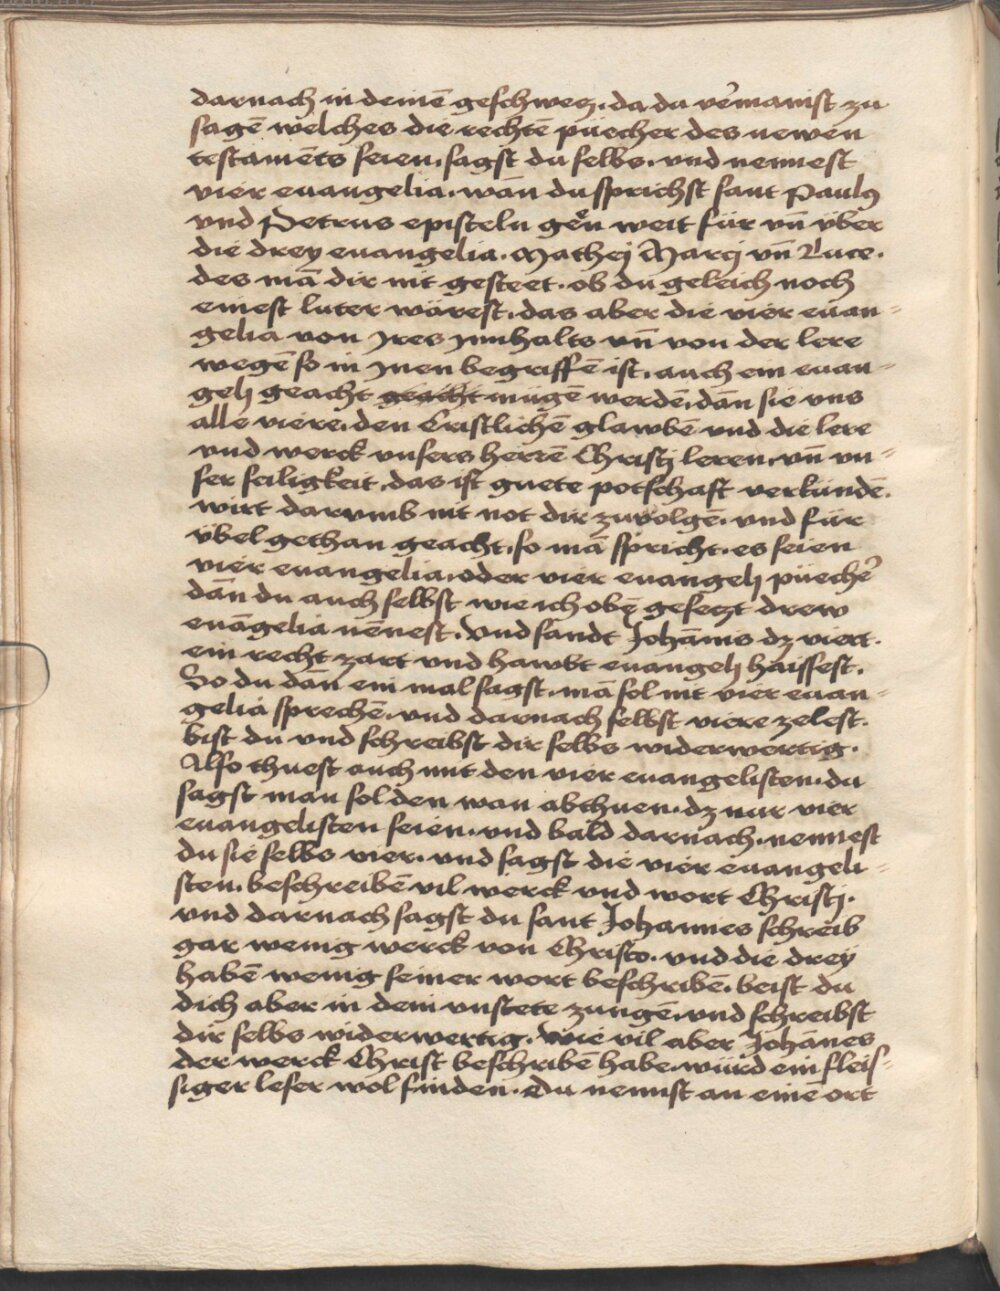 darnach in deinē geschwez. da du vermainst zu
sagē welches die rechtē püecher des newen
testamēts seien. sagst du selbs. vnd nennest
vier euangelia. wān du sprichst sant Paulus
vnd Petrus episteln geen weit für vn̄ vber
die drey euangelia. Mathej Marcj vn̄ Luce.
des mā dir nit gesteet. ob du geleich noch
einest luter wärest. das aber die vier euan-
gelia von Jres Jnnhalts vn̄ von der lere
wegē so in Jnen begriffē ist. auch ein euan-
gelj geacht geacht mügē werdē. dān sie vns
alle viere. den Cristlichē glawbē vnd die lere
vnd werck vnsers herrē Christj leren. vn̄ vn-
ser seiligkeit. das ist guete potschaft verkündē.
wirt darumb nit not dir zuuolgē. vnd für
übel gethan geacht. so mā spricht. es seien
vier euangelia. oder vier euangelj püecher
dān du auch selbst wie ich obē gesezt drew
euāgelia nēnest. vnd sandt Johānns dz viert.
ein recht zart vnd hawbt euangelj haissest.
So du dan ein mal sagst. mā sol nit vier euan-
gelia sprechē. vnd darnach selbst viere zelest.
bist du vnd schreibst dir selbs widerwertig.
Also thuest auch mit den vier euangelisten. du
sagst man sol den wan abthuen. dz nur vier
euangelisten seien. vnd bald darnach. nennest
du sie selbs vier. vnd sagst die vier euangeli-
sten. beschreibē vil werck vnd wort Christj.
vnd darnach sagst du sant Johannes schreib
gar wenig werck von Christo. vnd die drey
habē wenig seiner wort beschribē. beist du
dich aber in dein vnstete zungē. vnd schreibst
dir selbs widerwertig. Wie vil aber Johānes
der werck Christ beschribē habe. würd ein fleis-
siger leser wol finden. Du nennst an einē ort